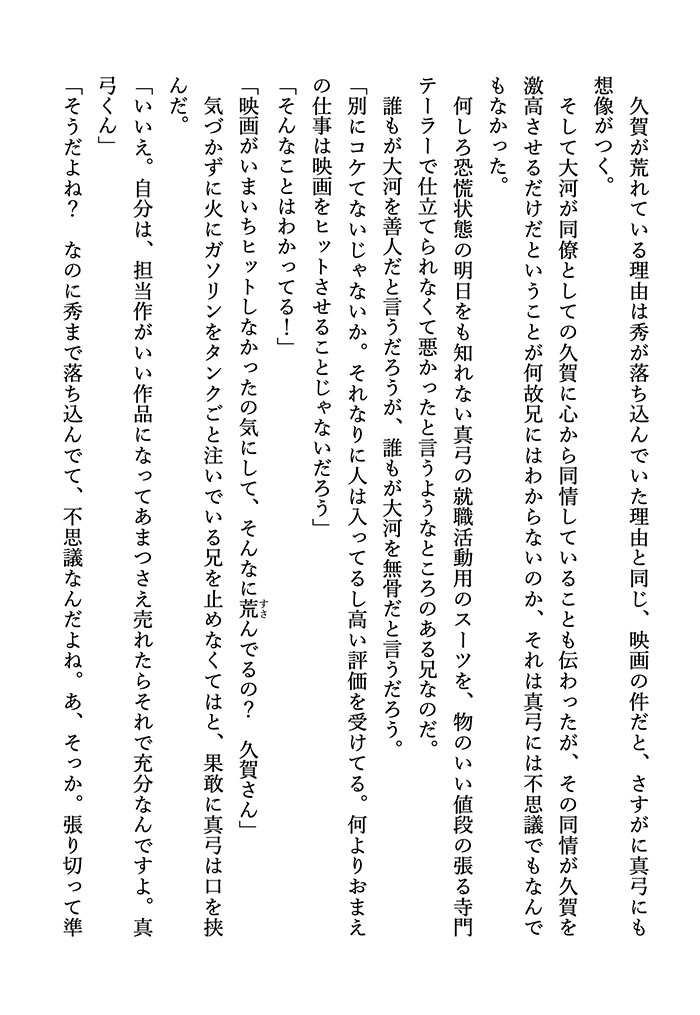 久賀が荒れている理由は秀が落ち込んでいた理由と同じ、映画の件だと、さすがに真弓にも
想像がつく。
そして大河が同僚としての久賀に心から同情していることも伝わったが、その同情が久賀を
激高させるだけだということが何故兄にはわからないのか、それは真弓には不思議でもなんで
もなかった。
何しろ恐慌状態の明日をも知れない真弓の就職活動用のスーツを、物のいい値段の張る寺門
テーラーで仕立てられなくて悪かったと言うようなところのある兄なのだ。
誰もが大河を善人だと言うだろうが、誰もが大河を無骨だと言うだろう。
「別にコケてないじゃないか。それなりに人は入ってるし高い評価を受けてる。何よりおまえ
の仕事は映画をヒットさせることじゃないだろう」
「そんなことはわかってる！」
「映画がいまいちヒットしなかったの気にして、そんなに荒んでるの？　久賀さん」
すさ
気づかずに火にガソリンをタンクごと注いでいる兄を止めなくてはと、果敢に真弓は口を挟
んだ。
「いいえ。自分は、担当作がいい作品になってあまつさえ売れたらそれで充分なんですよ。真
弓くん」
「そうだよね？　なのに秀まで落ち込んでて、不思議なんだよね。あ、そっか。張り切って準